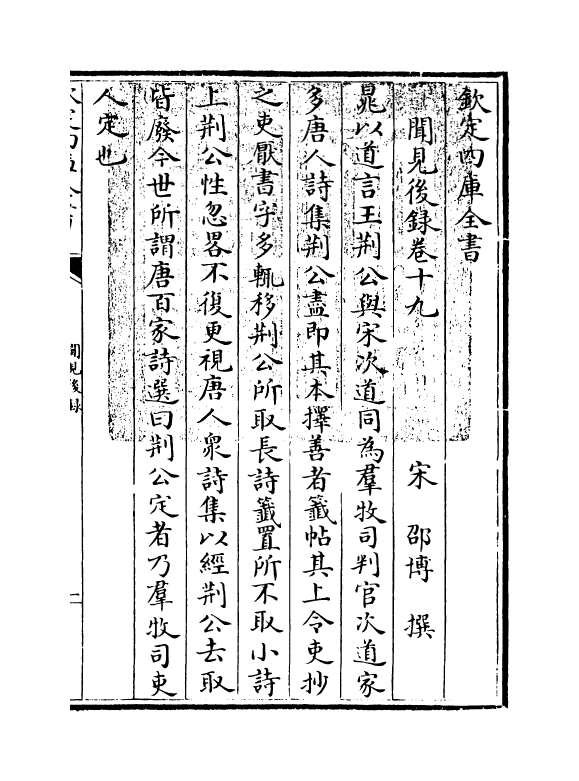 欽定四庫全書
聞見後録卷十九
宋 邵博 撰
晁以道言王荆公與宋次道同為羣牧司判官次道家
多唐人詩集荆公盡即其本擇善者籤帖其上令吏抄
之吏厭書字多輒移荆公所取長詩籤置所不取小詩
上荆公性忽畧不復更視唐人衆詩集以經荆公去取
皆廢今世所謂唐百家詩選曰荆公定者乃羣牧司吏
人定也
聞見後録